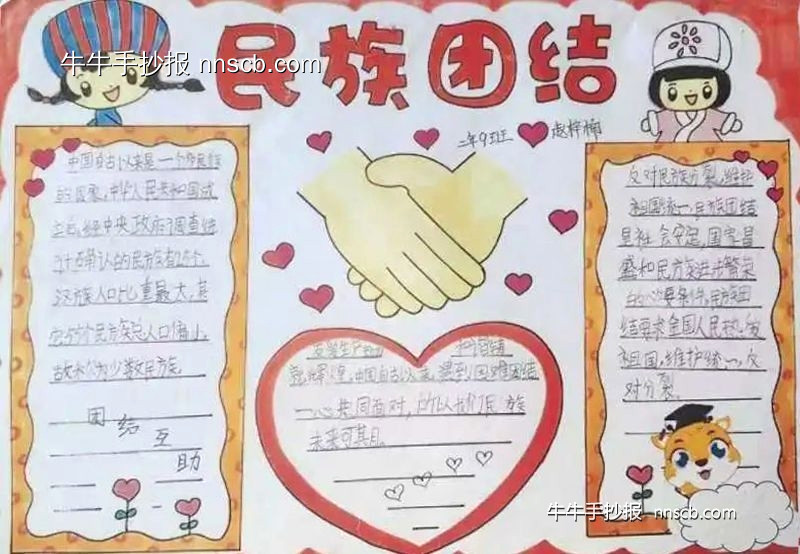 牛牛手抄报 nnscb.com
民族团结
二年9班 赵梓楠
中国自古以来是一个多民族
的国家，中华人民共和国成
立后，经中央政府
认的民族有56个，
汉族人口比重最大，其
他55个民族总人口偏少，
故称为少数民族。
团结互
助
发展生产
中国自古以来，遇到困难团结
一心共同面对，
未来可其月。
反对民族分裂，维护
祖国统一，民族团结
是社会安定，国家昌
盛和民族进步繁荣
的必要条件，民族团
结要求全国人民热爱
祖国，维护统一，反
对分裂。
牛牛手抄报 nnscb.com